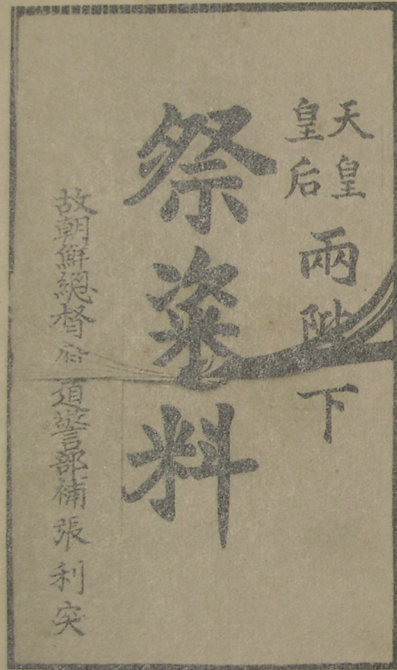 天皇
皇后
兩陛下
祭粢料
故朝鮮總督府道警部補張利突